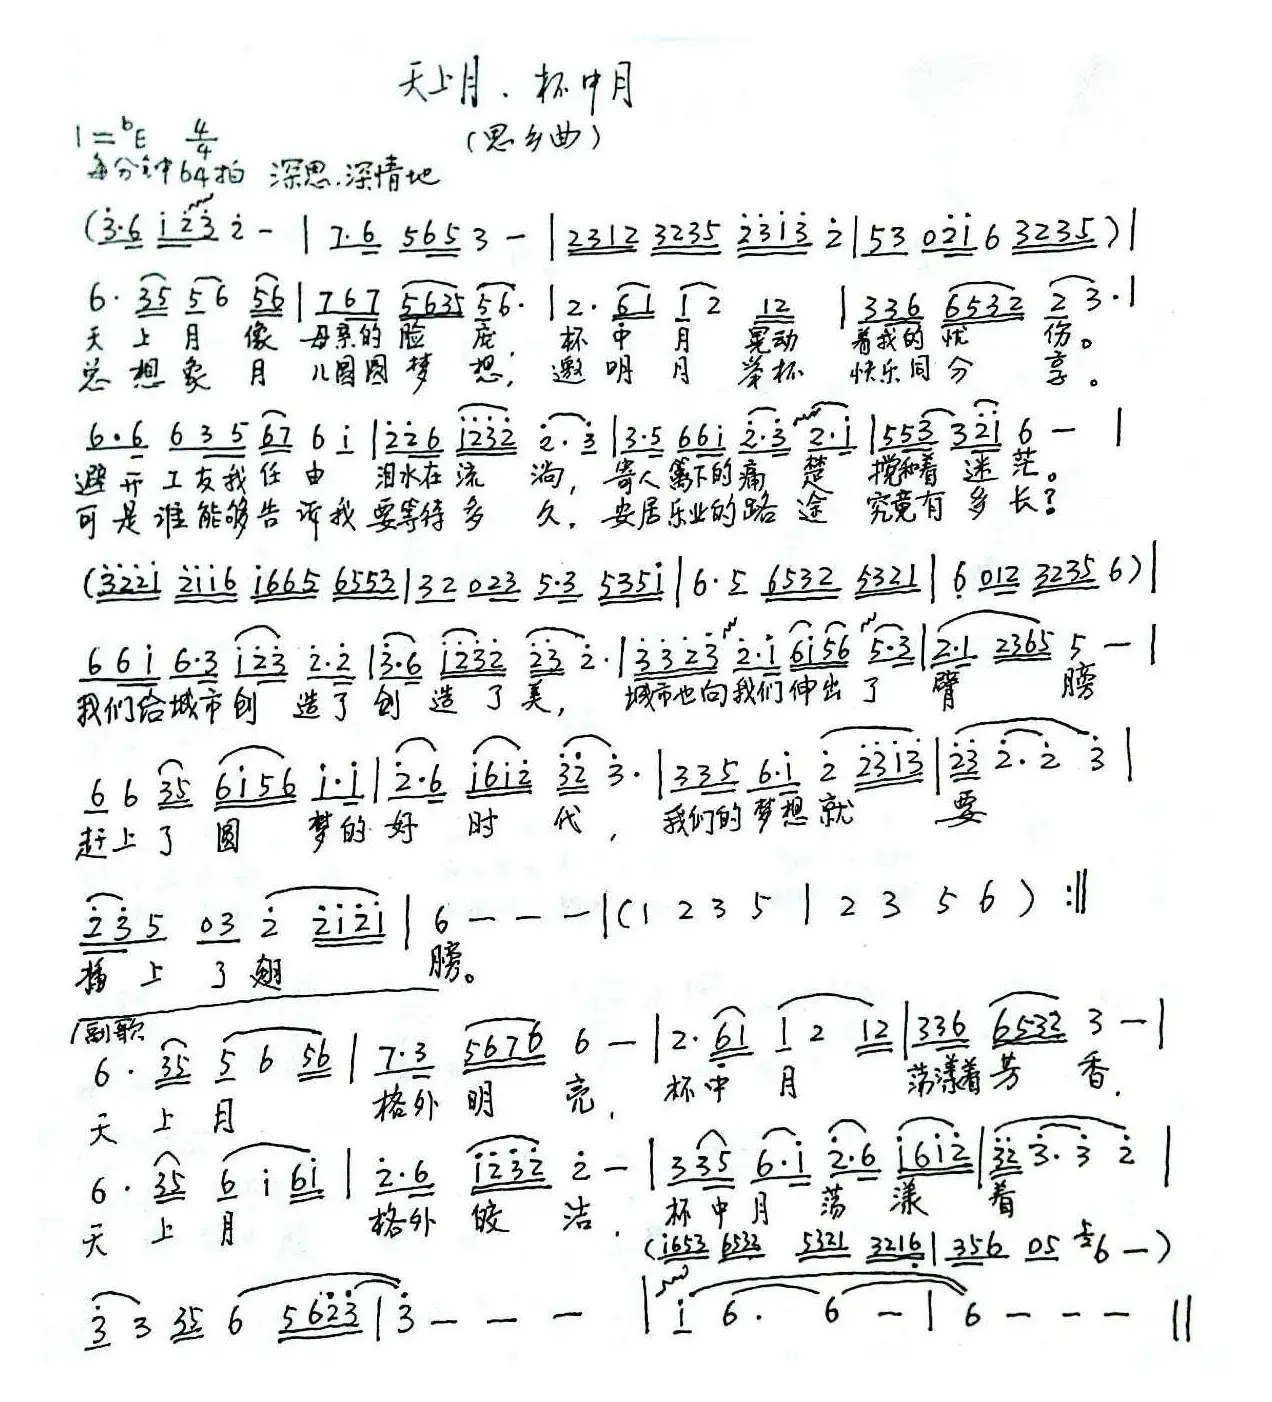 天上月、杯中月
(思乡曲)
1=bE 4/4
每分钟64拍 深思.深情地
(3·6 123 2 - | 7·6 565 3 - | 2312 3235 2313 2 | 53 021 6 3235) |
6· 35 56 56 | 767 5635 56· | 2· 61 12 12 | 336 6532 23· |
天上月像母亲的脸庞,杯中月晃动着我的忧伤。
总想象月儿圆圆梦想,邀明月举杯快乐同分享。
6·6 635 67 6 i | 226 1232 2·3 | 3·5 661 2·3 2·1 | 553 321 6 - |
避开工友我任由泪水在流淌,寄人篱下的痛楚搅和着迷茫。
可是谁能够告诉我要等待多久.安居乐业的路途究竟有多长?
(3221 2116 1665 6553 | 32 023 5·3 5351 | 6·5 6532 5321 | 6 012 3235 6) |
661 6·3 123 2·2 | 3·6 1232 23 2· | 3323 2·1 6156 5·3 | 2·1 2365 5 - |
我们给城市创造了创造了美,城市也向我们伸出了臂膀
6 6 35 6156 1·1 | 2·6 1612 32 3· | 335 6·1 2 2313 | 23 2·2 3 |
赶上了圆梦的好时代,我们的梦想就要
235 03 2 2121 | 6 - - - | (1 2 3 5 | 2 3 5 6) :||
插上了翅膀。
副歌
6· 35 5 6 56 | 7·3 5676 6 - | 2· 61 1 2 12 | 336 6532 3 - |
天上月格外明亮,杯中月荡漾着芳香.
6· 35 6 i 61 | 2·6 1232 2 - | 335 6·1 2·6 1612 | 32 3·3 2 |
天上月格外皎洁.杯中月荡漾着
(1653 6532 5321 3216 | 356 05 56 -)
3 3 35 6 5623 | 3 - - - | i 6· 6 - | 6 - - - ||